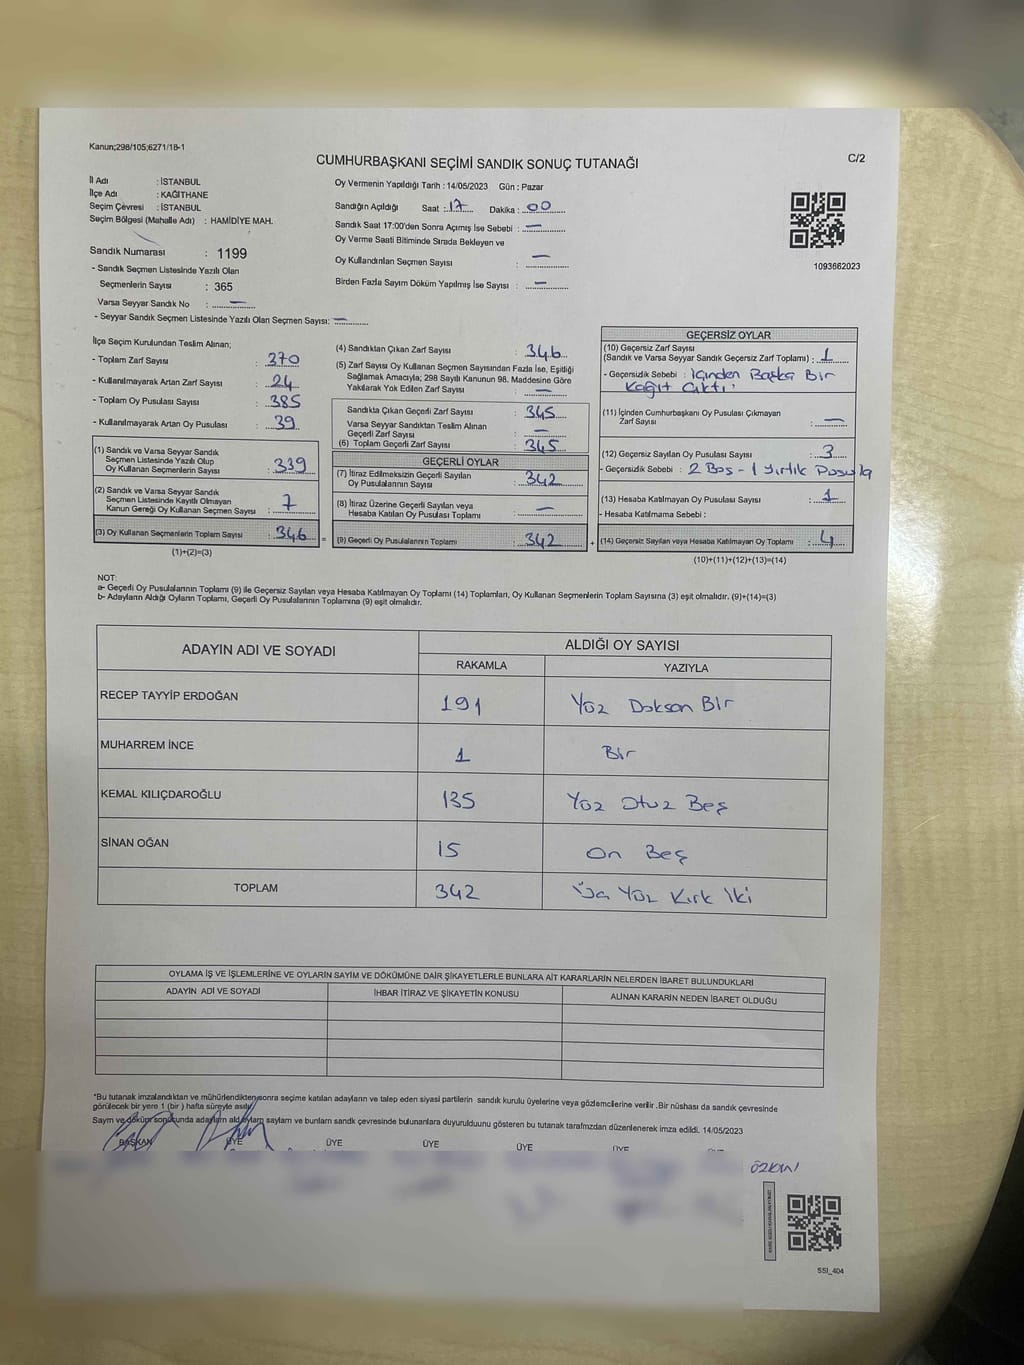 Kanun;298/105;6271/18-1
CUMHURBAŞKANI SEÇİMİ SANDIK SONUÇ TUTANAĞI
C/2
İl Adı : İSTANBUL
İlçe Adı : KAĞITHANE
Seçim Çevresi : İSTANBUL
Seçim Bölgesi (Mahalle Adı) : HAMİDİYE MAH.
Sandık Numarası : 1199
- Sandık Seçmen Listesinde Yazılı Olan
Seçmenlerin Sayısı : 365
Varsa Seyyar Sandık No : —
- Seyyar Sandık Seçmen Listesinde Yazılı Olan Seçmen Sayısı: —
Oy Vermenin Yapıldığı Tarih : 14/05/2023 Gün : Pazar
Sandığın Açıldığı Saat : 17 Dakika : 00
Sandık Saat 17:00'den Sonra Açımış İse Sebebi : —
Oy Verme Saati Bitiminde Sırada Bekleyen ve
Oy Kullandırılan Seçmen Sayısı : —
Birden Fazla Sayım Döküm Yapılmış İse Sayısı : —
1093662023
İlçe Seçim Kurulundan Teslim Alınan;
- Toplam Zarf Sayısı : 370
- Kullanılmayarak Artan Zarf Sayısı : 24
- Toplam Oy Pusulası Sayısı : 385
- Kullanılmayarak Artan Oy Pusulası : 39
(1) Sandık ve Varsa Seyyar Sandık
Seçmen Listesinde Yazılı Olup
Oy Kullanan Seçmenlerin Sayısı : 339
(2) Sandık ve Varsa Seyyar Sandık
Seçmen Listesinde Kayıtlı Olmayan
Kanun Gereği Oy Kullanan Seçmen Sayısı : 7
(3) Oy Kullanan Seçmenlerin Toplam Sayısı : 346
(1)+(2)=(3)
(4) Sandıktan Çıkan Zarf Sayısı : 346
(5) Zarf Sayısı Oy Kullanan Seçmen Sayısından Fazla İse, Eşitliği
Sağlamak Amacıyla; 298 Sayılı Kanunun 98. Maddesine Göre
Yakılarak Yok Edilen Zarf Sayısı : —
Sandıkta Çıkan Geçerli Zarf Sayısı : 345
Varsa Seyyar Sandıktan Teslim Alınan
Geçerli Zarf Sayısı : —
(6) Toplam Geçerli Zarf Sayısı : 345
GEÇERLİ OYLAR
(7) İtiraz Edilmeksizin Geçerli Sayılan
Oy Pusulalarının Sayısı : 342
(8) İtiraz Üzerine Geçerli Sayılan veya
Hesaba Katılan Oy Pusulası Toplamı : —
= (9) Geçerli Oy Pusulalarının Toplamı : 342
GEÇERSİZ OYLAR
(10) Geçersiz Zarf Sayısı
(Sandık ve Varsa Seyyar Sandık Geçersiz Zarf Toplamı) : 1
- Geçersizlik Sebebi : İçinden Başka Bir
Kağıt Çıktı
(11) İçinden Cumhurbaşkanı Oy Pusulası Çıkmayan
Zarf Sayısı : —
(12) Geçersiz Sayılan Oy Pusulası Sayısı : 3
- Geçersizlik Sebebi : 2 Boş - 1 yırtık Pusula
(13) Hesaba Katılmayan Oy Pusulası Sayısı : 1
- Hesaba Katılmama Sebebi :
+ (14) Geçersiz Sayılan veya Hesaba Katılmayan Oy Toplamı : 4
(10)+(11)+(12)+(13)=(14)
NOT:
a- Geçerli Oy Pusulalarının Toplamı (9) ile Geçersiz Sayılan veya Hesaba Katılmayan Oy Toplamı (14) Toplamları, Oy Kullanan Seçmenlerin Toplam Sayısına (3) eşit olmalıdır. (9)+(14)=(3)
b- Adayların Aldığı Oyların Toplamı, Geçerli Oy Pusulalarının Toplamına (9) eşit olmalıdır.
ADAYIN ADI VE SOYADI
ALDIĞI OY SAYISI
RAKAMLA YAZIYLA
RECEP TAYYİP ERDOĞAN 191 Yüz Doksan Bir
MUHARREM İNCE 1 Bir
KEMAL KILIÇDAROĞLU 135 Yüz Otuz Beş
SİNAN OĞAN 15 On Beş
TOPLAM 342 Üç Yüz Kırk İki
OYLAMA İŞ VE İŞLEMLERİNE VE OYLARIN SAYIM VE DÖKÜMÜNE DAİR ŞİKAYETLERLE BUNLARA AİT KARARLARIN NELERDEN İBARET BULUNDUKLARI
ADAYIN ADI VE SOYADI İHBAR İTİRAZ VE ŞİKAYETİN KONUSU ALINAN KARARIN NEDEN İBARET OLDUĞU
*Bu tutanak imzalandıktan ve mühürlendikten sonra seçime katılan adayların ve talep eden siyasi partilerin sandık kurulu üyelerine veya gözlemcilerine verilir .Bir nüshası da sandık çevresinde
görülecek bir yere 1 (bir ) hafta süreyle asılır
Sayım ve döküm sonucunda adayların aldıkları oyların sayısını ve bunların sandık çevresinde bulunanlara duyurulduunu gösteren bu tutanak tarafımızdan düzenlenerek imza edildi. 14/05/2023
BAŞKAN ÜYE ÜYE ÜYE ÜYE ÜYE
SSI_404